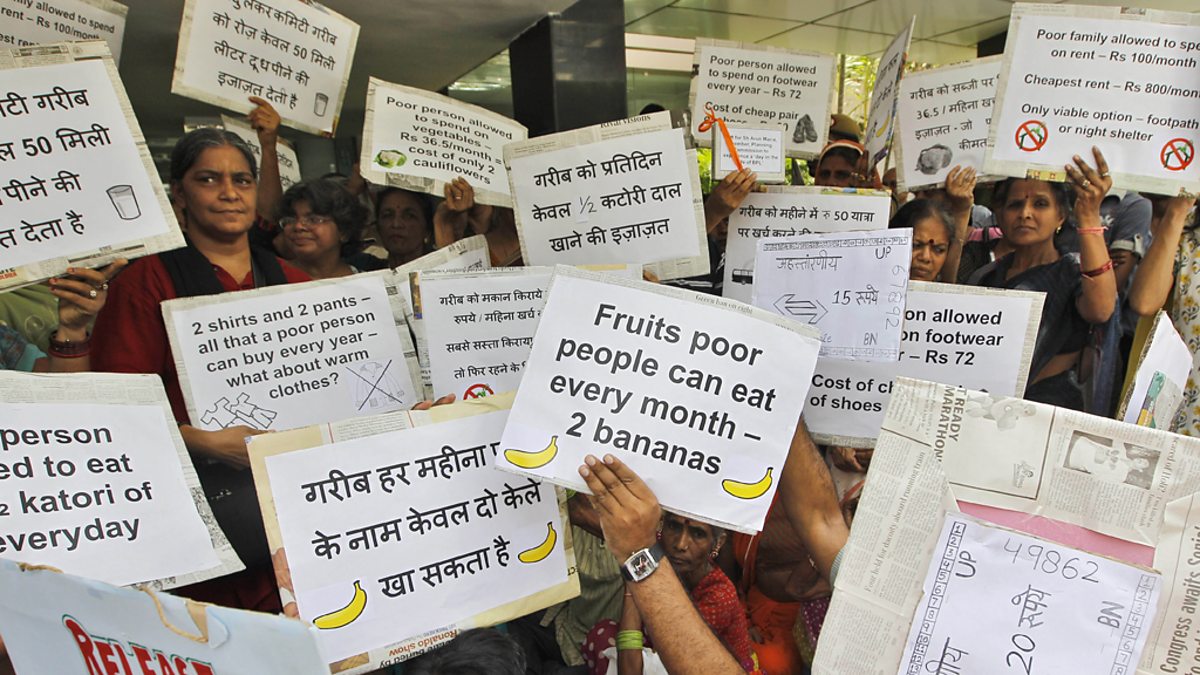 allowed to spend
rent – Rs 100/month
कमिटी गरीब
को रोज़ केवल 50 मिली
लीटर दूध पीने की
इजाज़त देता है
गरीब
50 मिली
पीने की
देता है
Poor person allowed
to spend on
vegetables –
Rs 36.5/month =
cost of only 2
cauliflowers
गरीब को प्रतिदिन
केवल ½ कटोरी दाल
खाने की इज़ाज़त
Poor person allowed
to spend on footwear
every year – Rs 72
Cost of cheap pair
गरीब को सब्जी पर
36.5 / महिना
इज़ाज़त - जो
कीमत
Poor family allowed to
on rent – Rs 100/month
Cheapest rent – Rs 800/
Only viable option – footpath
or night shelter
गरीब को महीने में रु 50 यात्रा
पर खर्च
UP
15 रूपये
67892
BN
2 shirts and 2 pants –
all that a poor person
can buy every year –
what about warm
clothes?
गरीब को मकान किराये
रुपये / महिना खर्च
सबसे सस्ता किराया
तो फिर रहने के
Fruits poor
people can eat
every month –
2 bananas
on allowed
on footwear
– Rs 72
Cost of
of shoes
person
to eat
½ katori of
everyday
गरीब हर महीना
के नाम केवल दो केले
खा सकता है
Ronaldo show
READY
MARATHON
UP
49862
20 रूपये
BN
Congress awaits